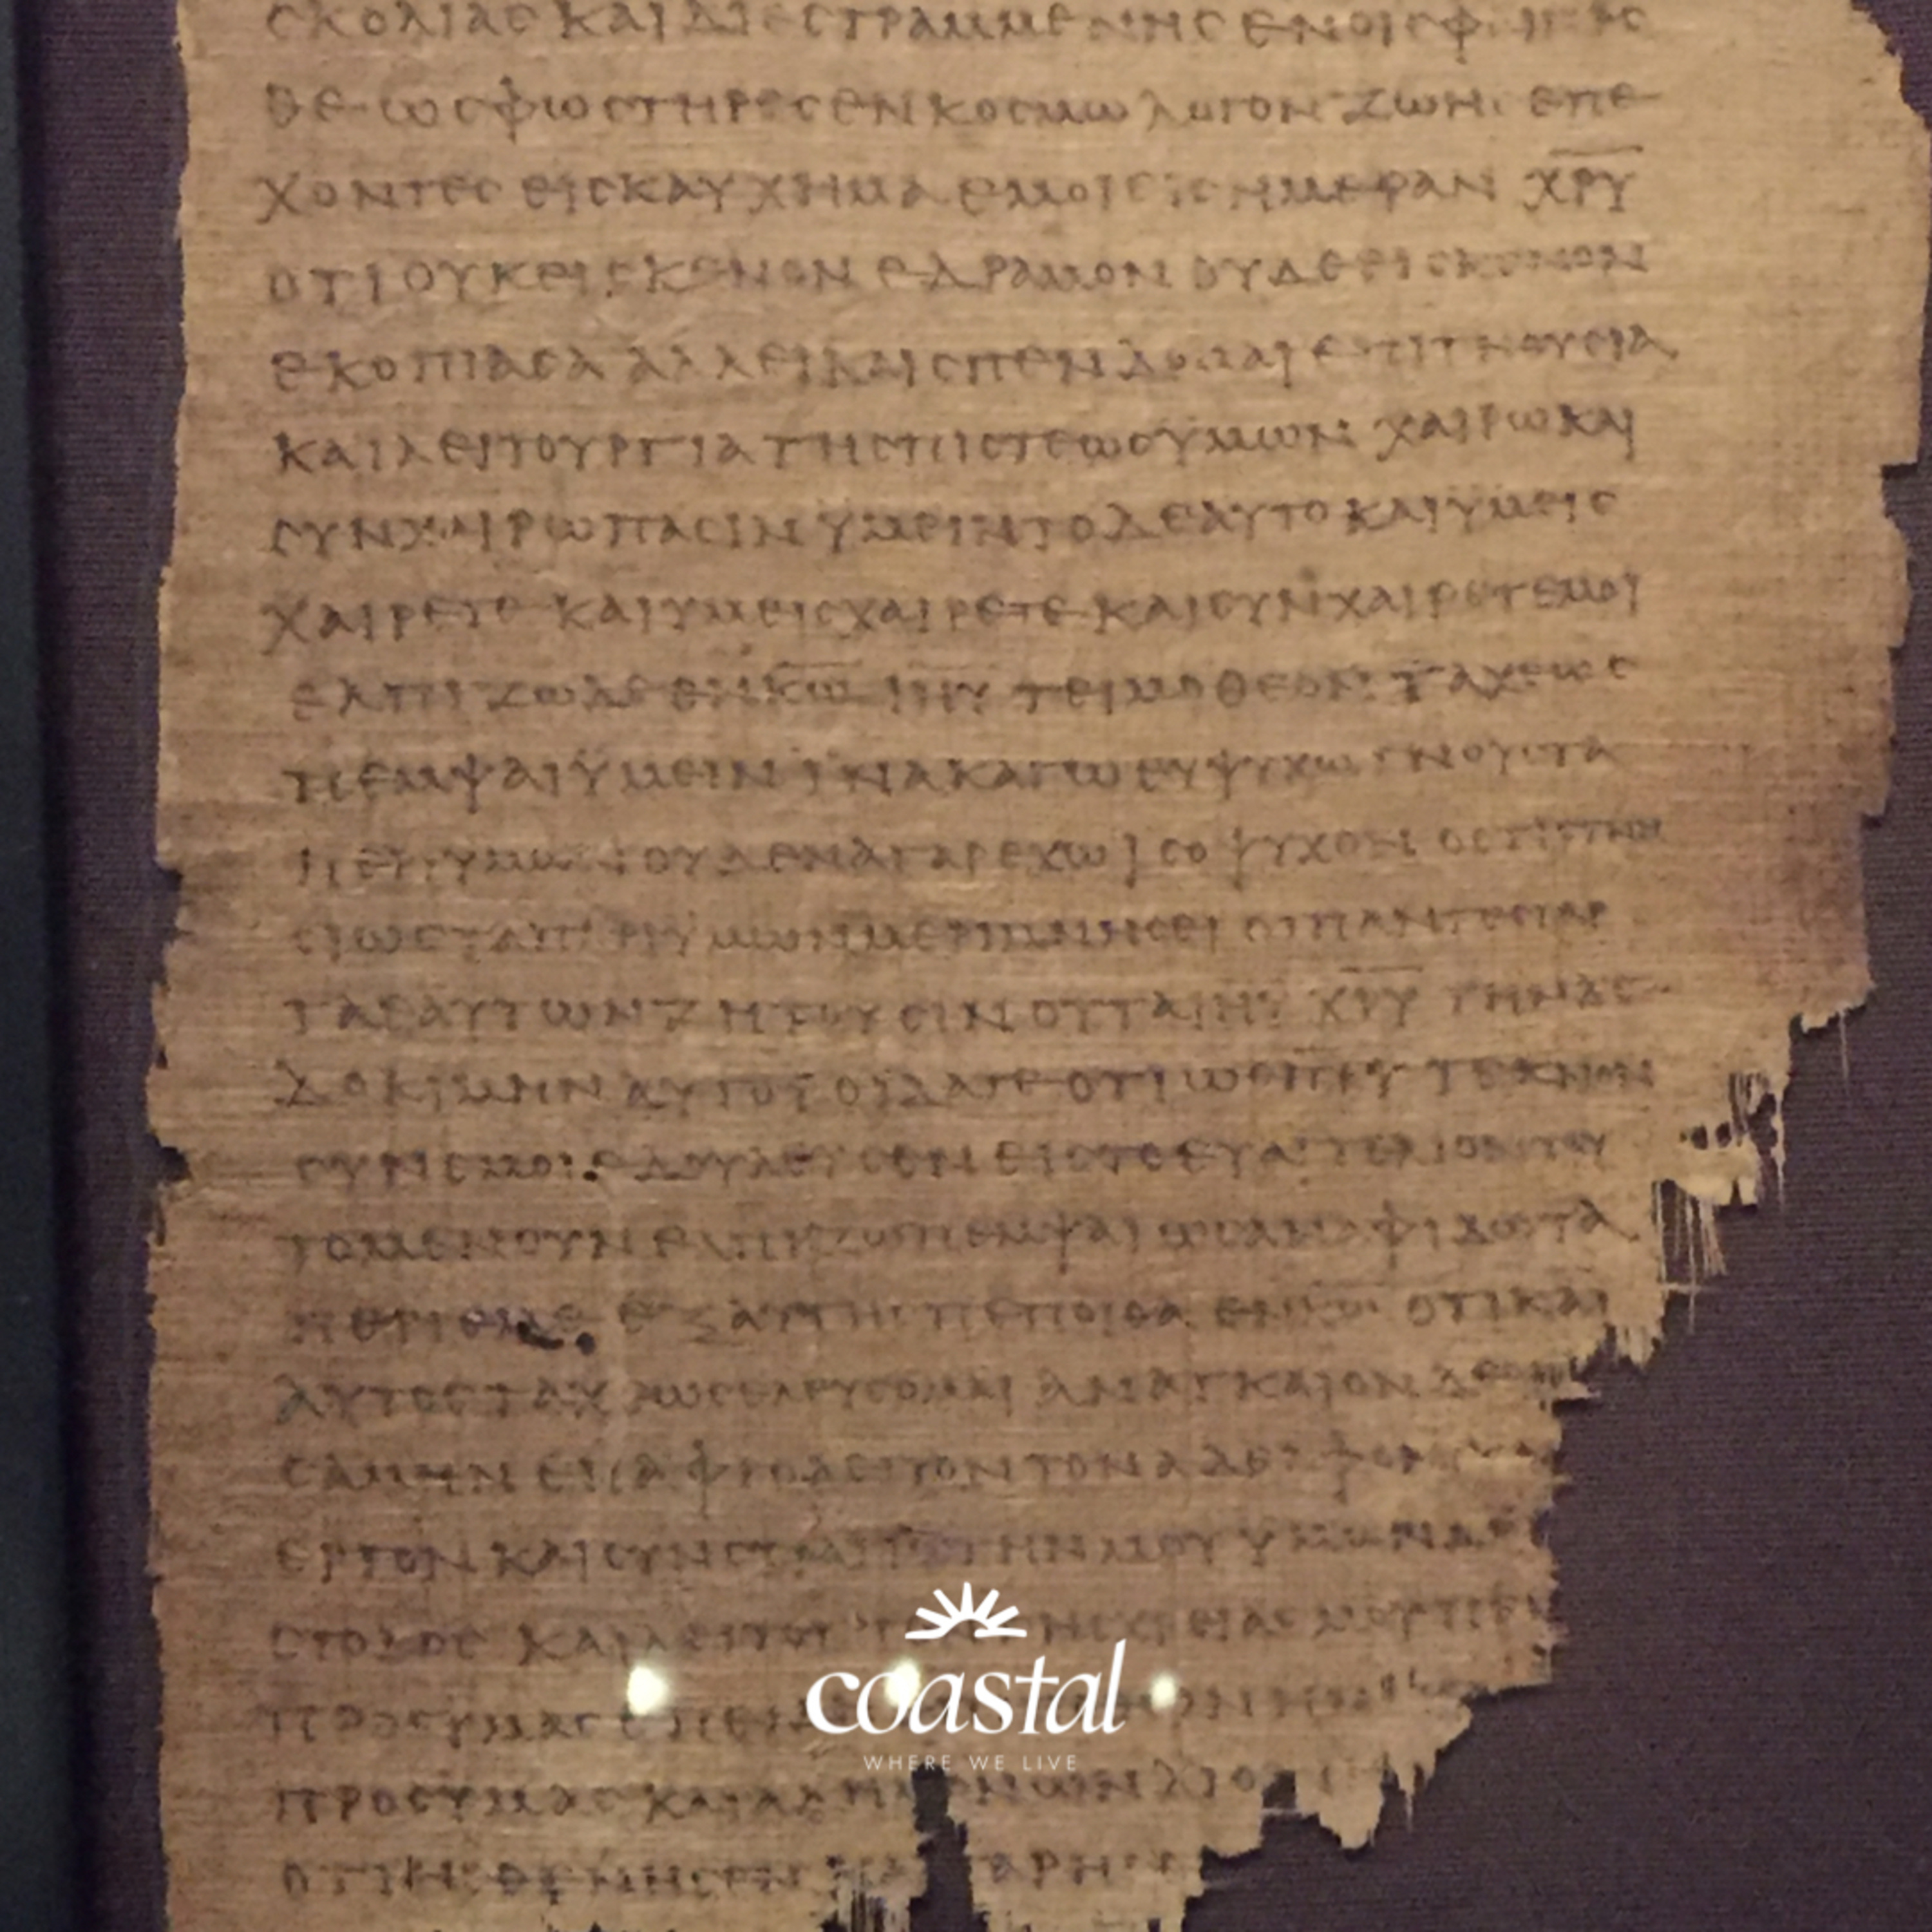 ϲκολιαϲ και διεϲτραμμενηϲ εν οιϲ
θε ωϲ φωϲτηρεϲ εν κοϲμω λογον ζωηϲ επε
χοντεϲ ειϲ καυχημα εμοι ειϲ ημεραν χ̅ρ̅υ̅
οτι ουκ ειϲ κενον εδραμον ουδε ειϲ κενον
εκοπιαϲα αλλ ει και ϲπενδομαι επι τη θυϲια
και λειτουργια τηϲ πιϲτεωϲ υμων χαιρω και
ϲυνχαιρω παϲιν υμειν το δε αυτο και υμειϲ
χαιρετε και υμειϲ χαιρετε και ϲυνχαιρετε μοι
ελπιζω δε εν κ̅ω̅ ι̅η̅υ̅ τειμοθεον ταχεωϲ
πεμψαι υμειν ινα καγω ευψυχω γνουϲ τα
περι υμων ουδενα γαρ εχω ιϲοψυχον οϲτιϲ
τα περι υμων μεριμνηϲει οι παντεϲ γαρ
τα εαυτων ζητουϲιν ου τα ι̅η̅υ̅ χ̅ρ̅υ̅ την δε
δοκιμην αυτου οιδατε οτι ωϲ π̅ρ̅ι̅ τεκνον
ϲυν εμοι εδουλευϲεν ειϲ το ευαγγελιον
τα
περι εμε εξαυτηϲ πεποιθα εν κ̅ω̅ οτι και
αυτοϲ ταχεωϲ ελευϲομαι αναγκαιον δε
τον αδελφον
εργον και ϲυνϲτρατιωτην μου υμων
ϲτολον και λειτουργον τηϲ χρειαϲ
προϲ υμαϲ
προϲ υμαϲ και
οτι ηϲθενηϲεν και γαρ
coastal
WHERE WE LIVE